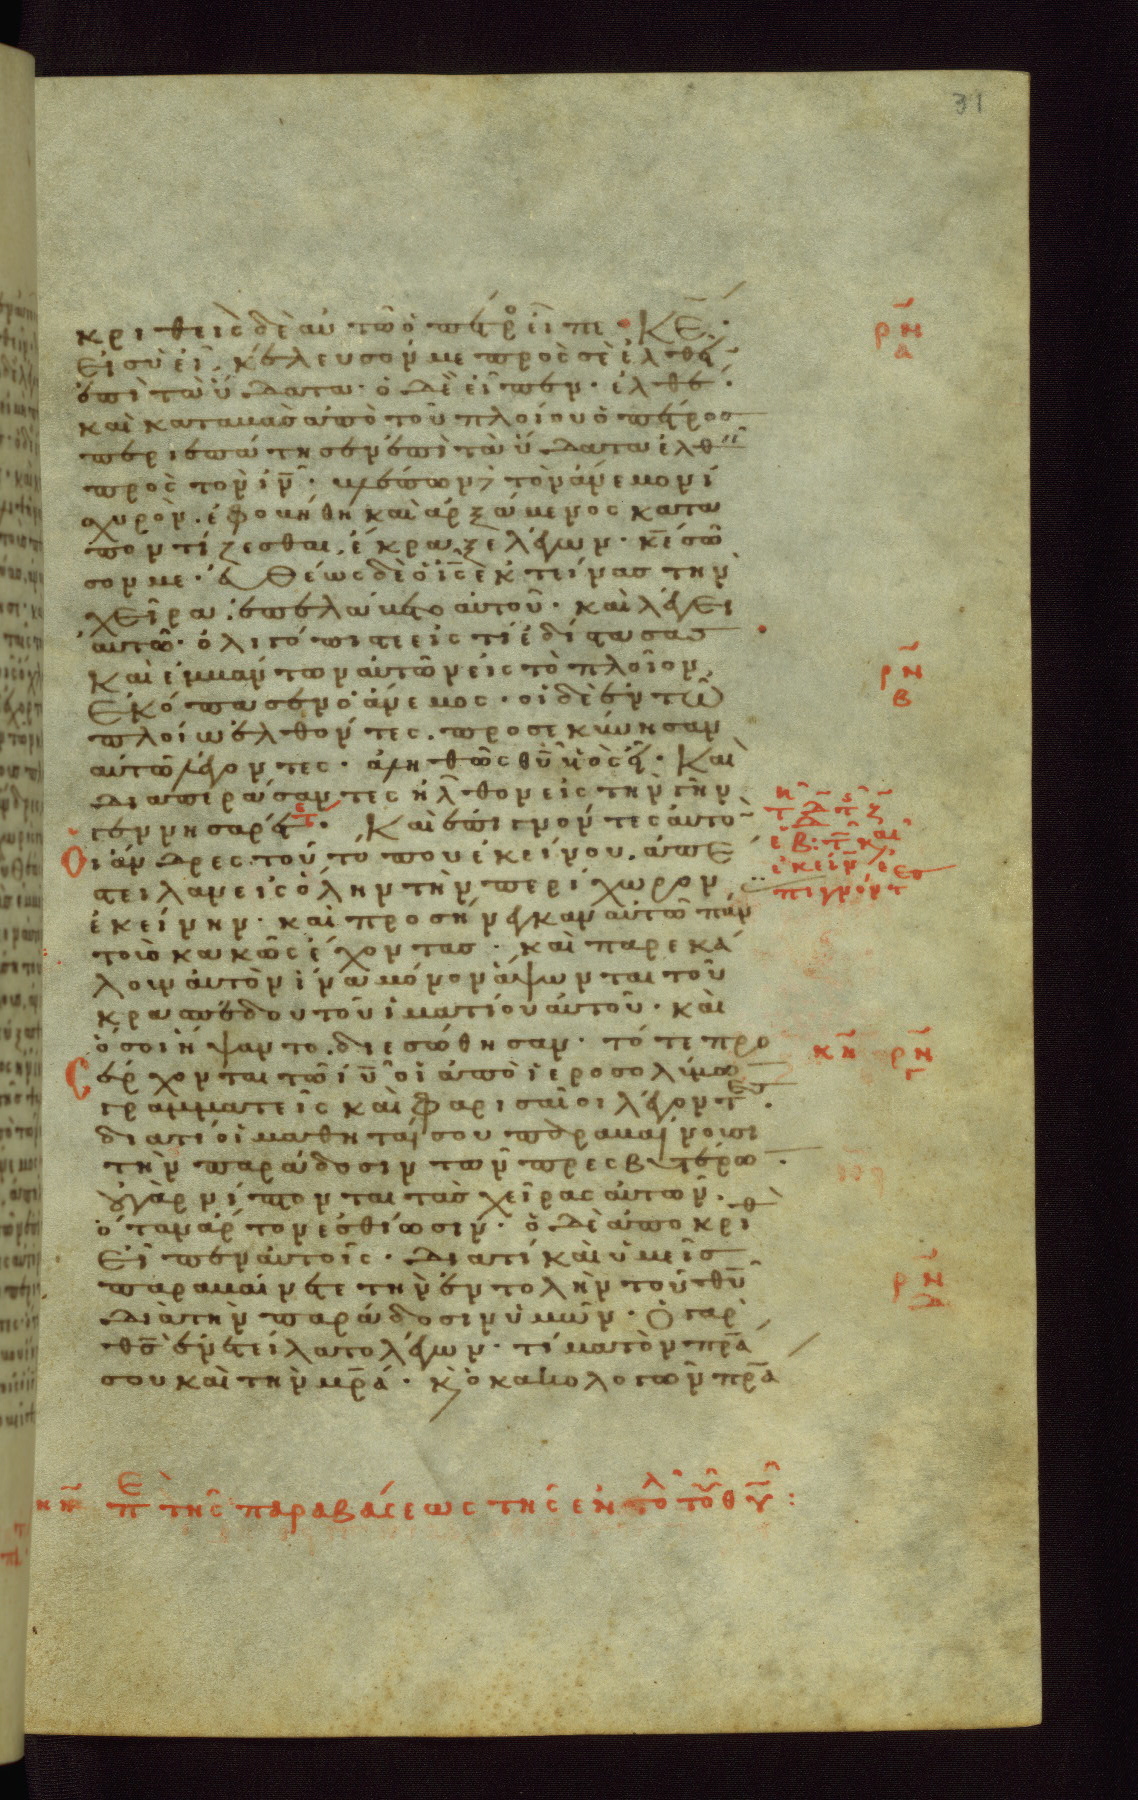 31
κριθεὶς δὲ αὐτῶ ὁ πέτρο εἶπε· Κ̅Ε̅·
εἰ σὺ εἶ, κέλευσόν με πρὸς σὲ ἐλθεῖ
ἐπὶ τὰ ὕδατα· ὁ δὲ εἶπεν· ἐλθέ·
καὶ καταβὰς ἀπὸ τοῦ πλοίου ὁ πέτρος
περιεπάτησεν ἐπὶ τὰ ὕδατα ἐλθεῖ
πρὸς τὸν ι̅ν̅· βλέπων δὲ τὸν ἄνεμον ἰ
σχυρὸν· ἐφοβήθη καὶ ἀρξάμενος κατα
ποντίζεσθαι, ἔκραξε λέγων· κ̅ε̅ σῶ
σον με· εὐθέως δὲ ὁ ι̅ς̅ ἐκτείνας τὴν
χεῖρα, ἐπελάβετο αὐτοῦ· καὶ λέγει
αὐτῶ· ὀλιγόπιστε εἰς τί ἐδίστασας
Καὶ ἐμβάντων αὐτῶν εἰς τὸ πλοῖον,
ἐκόπασεν ὁ ἄνεμος· οἱ δὲ ἐν τῶ
πλοίω ἐλθόντες· προσεκύνησαν
αὐτῶ λέγοντες· ἀληθῶς θ̅υ̅ υ̅ς̅ εἶ· Καὶ
διαπεράσαντες ἦλθον εἰς τὴν γῆν
γεννησαρέτ· Καὶ ἐπιγνόντες αὐτὸ
οἱ ἄνδρες τοῦ τόπου ἐκείνου, ἀπέ
στειλαν εἰς ὅλην τὴν περίχωρον
ἐκείνην· καὶ προσήνεγκαν αὐτῶ πάν
τας κακῶς ἔχοντας· καὶ παρεκά
λουν αὐτὸν ἵνα μόνον ἅψωνται τοῦ
κρασπέδου τοῦ ἱματίου αὐτοῦ· καὶ
ὅσοι ἥψαντο, διεσώθησαν· τότε προ
σέρχονται τῶ ι̅υ̅ οἱ ἀπὸ ἱεροσολύμω
γραμματεῖς καὶ φαρισαῖοι λέγοντες·
διατί οἱ μαθηταί σου παραβαίνουσι
τὴν παράδοσιν τῶν πρεσβυτέρω·
οὐ γὰρ νίπτονται τὰς χεῖρας αὐτῶν·
ὅταν ἄρτον ἐσθίωσιν· ὁ δὲ ἀποκριθ
εἶπεν αὐτοῖς· διατί καὶ ὑμεῖς
παραβαίνετε τὴν ἐντολὴν τοῦ θ̅υ̅
διὰ τὴν παράδοσιν ὑμῶν· ὁ γὰρ
θ̅ς̅ ἐνετείλατο λέγων· τίμα τὸν π̅ρ̅α̅
σου καὶ τὴν μ̅ρ̅α̅· κ ὁ κακολογῶν π̅ρ̅α̅
ρν
α
ρν
β
κη ρν
γ
ρν
δ
κη Επ τῆς παραβάσεως τῆς ἐντολ τοῦ θ̅υ̅: